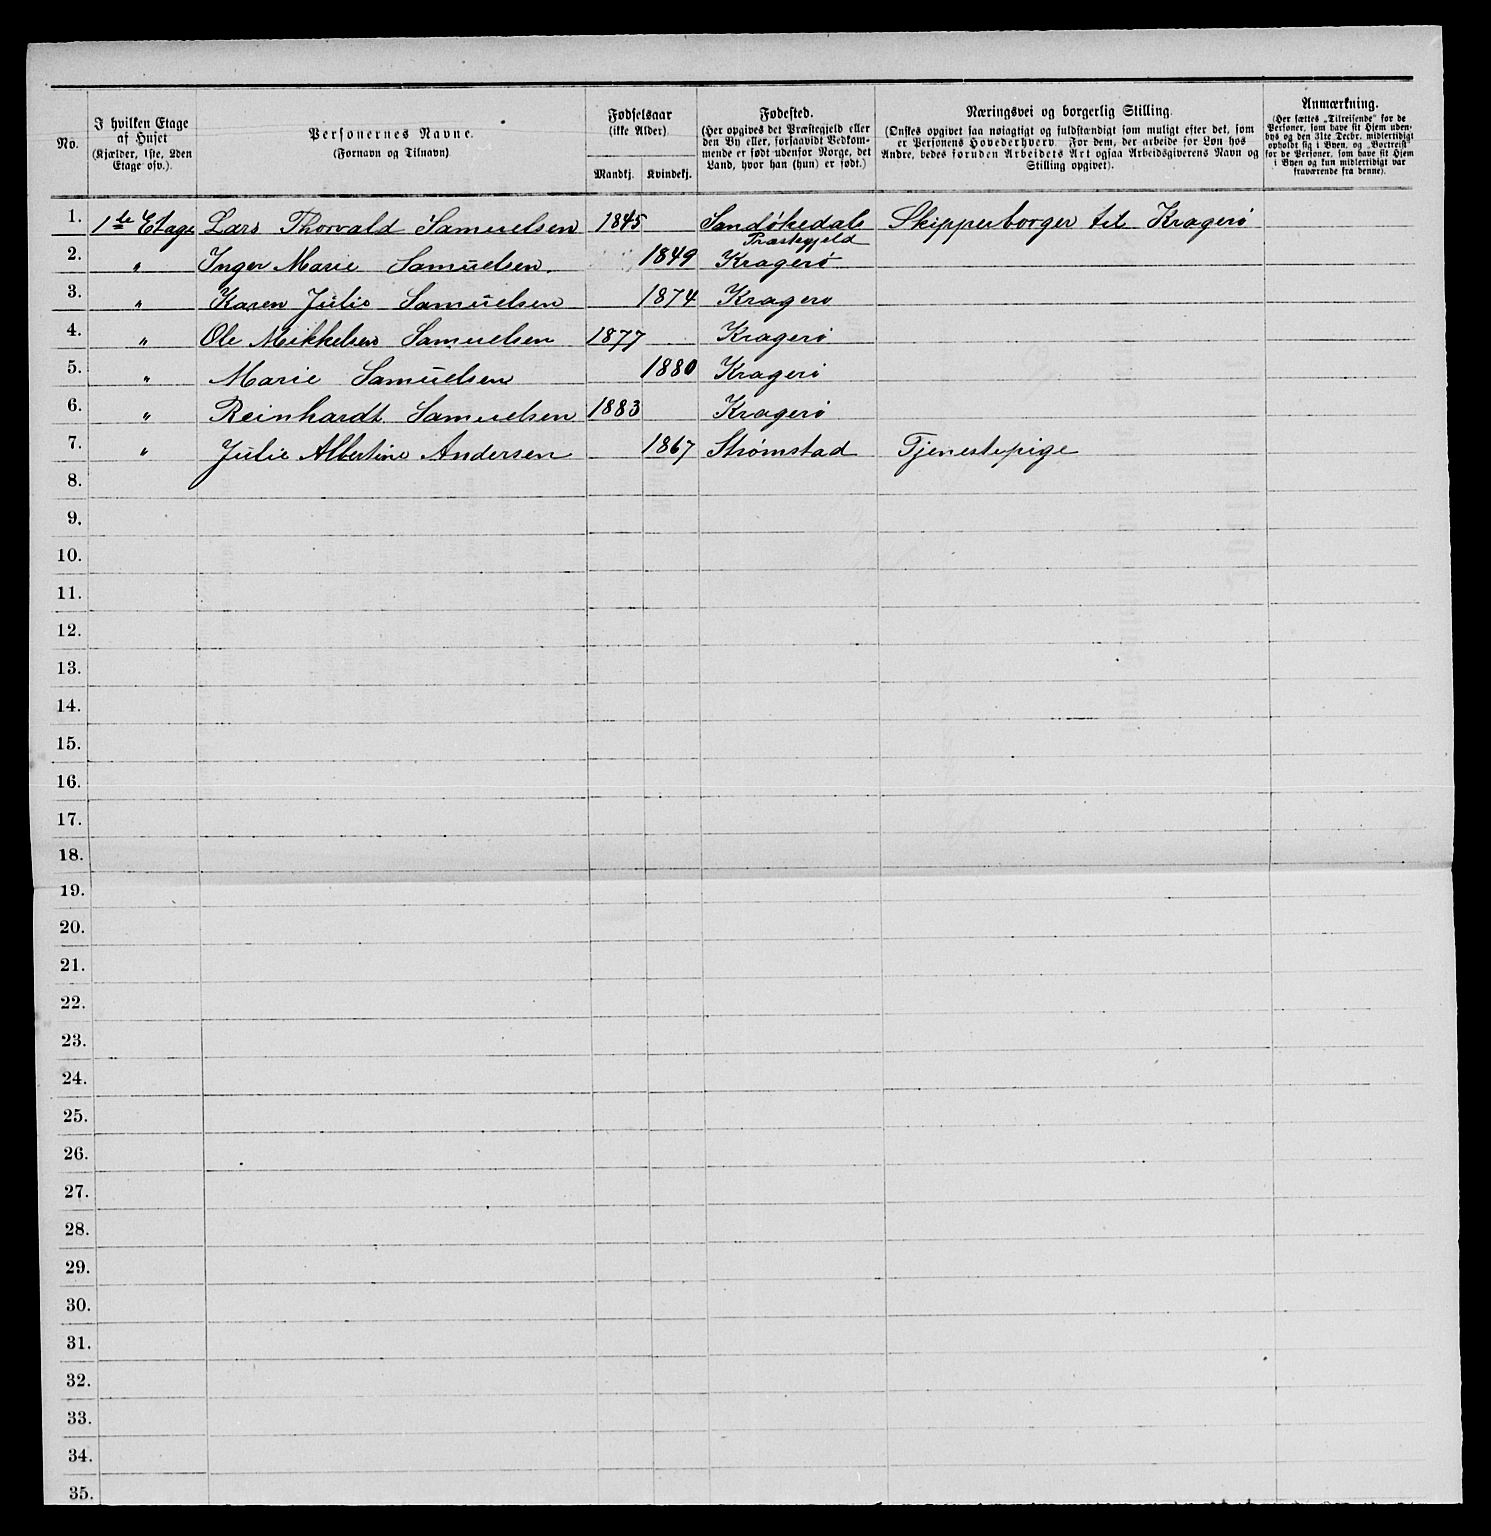 No.
I hvilken Etage af Huset (Kjælder, 1ste, 2den Etage osv.).
Personernes Navne. (Fornavn og Tilnavn)
Fødselsaar (ikke Alder).
Mandkj. Kvindekj.
Fødested. (Her opgives det Præstegjeld eller den By eller, forsaavidt Vedkommende er født udenfor Norge, det Land, hvor han (hun) er født.)
Næringsvei og borgerlig Stilling. (Ønskes opgivet saa nøiagtigt og fuldstændigt som muligt efter det, som er Personens Hovederhverv. For dem, der arbeide for Løn hos Andre, bedes foruden Arbeidets Art ogsaa Arbeidsgiverens Navn og Stilling opgivet).
Anmærkning. (Her sættes „Tilreisende" for de Personer, som have sit Hjem udenbys og den 31te Decbr. midlertidigt opholdt sig i Byen, og „Bortreist" for de Personer, som have sit Hjem i Byen og kun midlertidigt var fraværende fra denne).
1. 1ste Etage Lars Thorvald Samuelsen 1845 Sandøkedals Præstegjeld Skipperborger til Kragerö
2. " Inger Marie Samuelsen. 1849 Kragerö
3. " Karen Julie Samuelsen 1874 Kragerø
4. " Ole Mikkelsen Samuelsen 1877 Kragerö
5. " Marie Samuelsen 1880 Kragerö
6. " Reinhardt Samuelsen 1883 Kragerö
7. " Julie Albertine Andersen 1867 Strømstad Tjenestepige
8.
9.
10.
11.
12.
13.
14.
15.
16.
17.
18.
19.
20.
21.
22.
23.
24.
25.
26.
27.
28.
29.
30.
31.
32.
33.
34.
35.